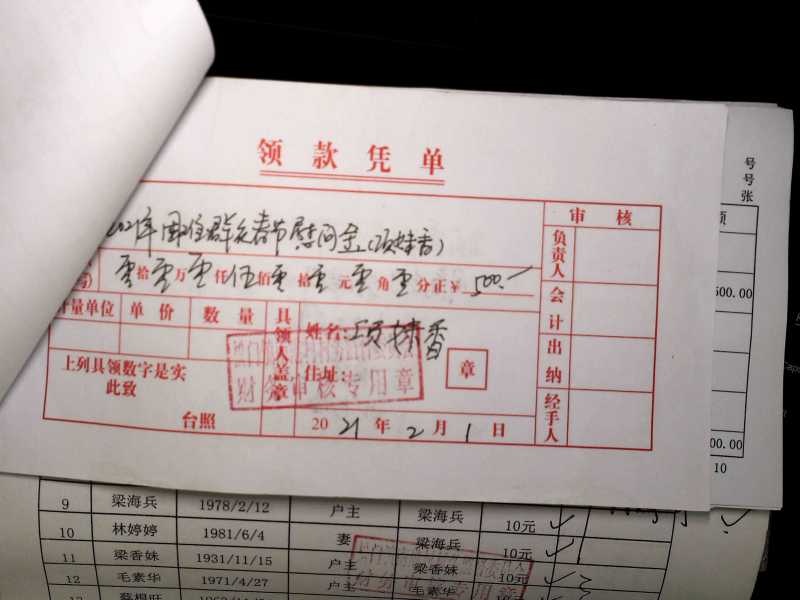 领款凭单
2021年困难群众春节慰问金(项妹香)
零拾零万零仟伍佰零拾零元零角零分正¥500.—
计量单位 单价 数量 具领人盖章 姓名:项妹香
住址: 章
上列具领数字是实
此致
台照
2021年2月1日
审核
负责人
会计
出纳
经手人
财务审核专用章
号
号
张
额
500.00
00.00
10
9 梁海兵 1978/2/12 户主 梁海兵 10元
10 林婷婷 1981/6/4 妻 梁海兵 10元
11 梁香妹 1931/11/15 户主 梁香妹 10元
12 毛素华 1971/4/27 户主 毛素华 10元